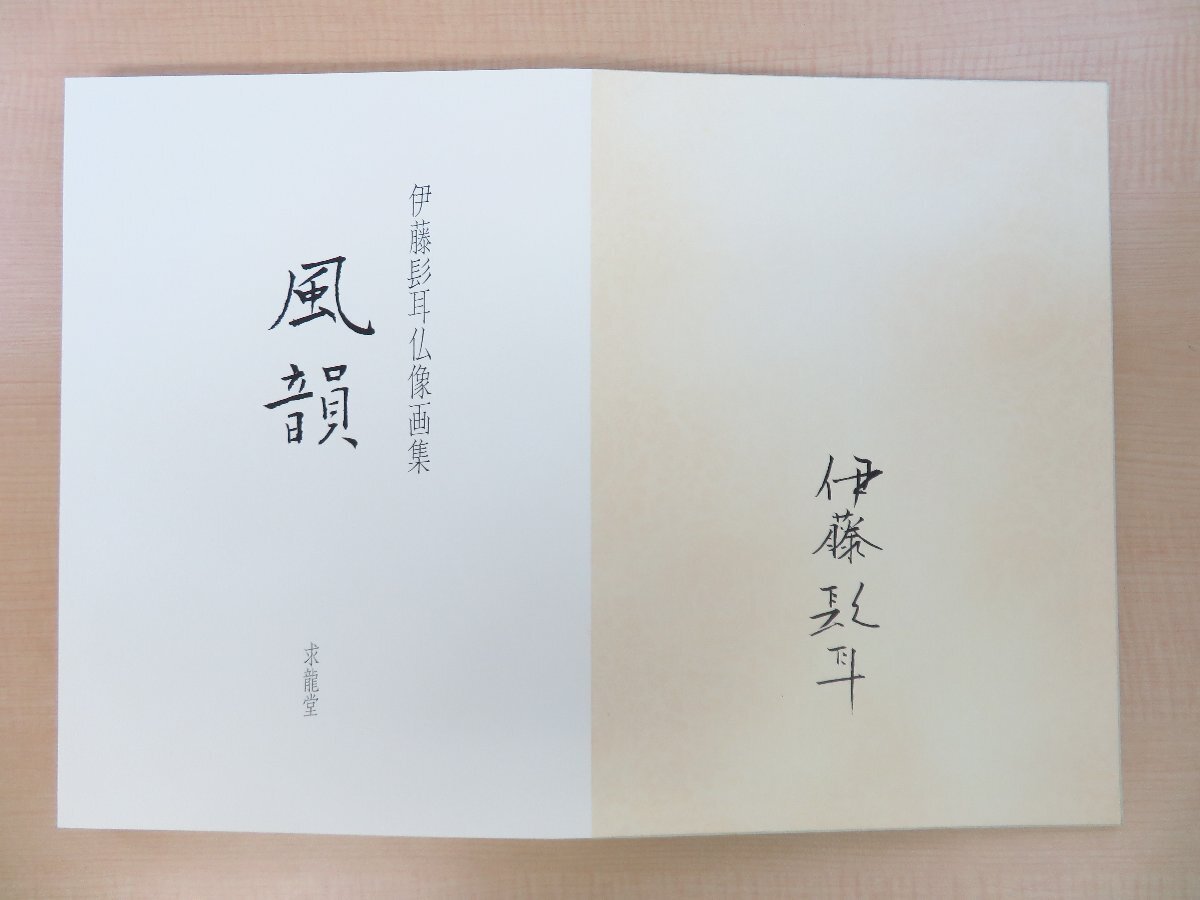 伊藤髟耳
伊藤髟耳仏像画集
風韻
求龍堂